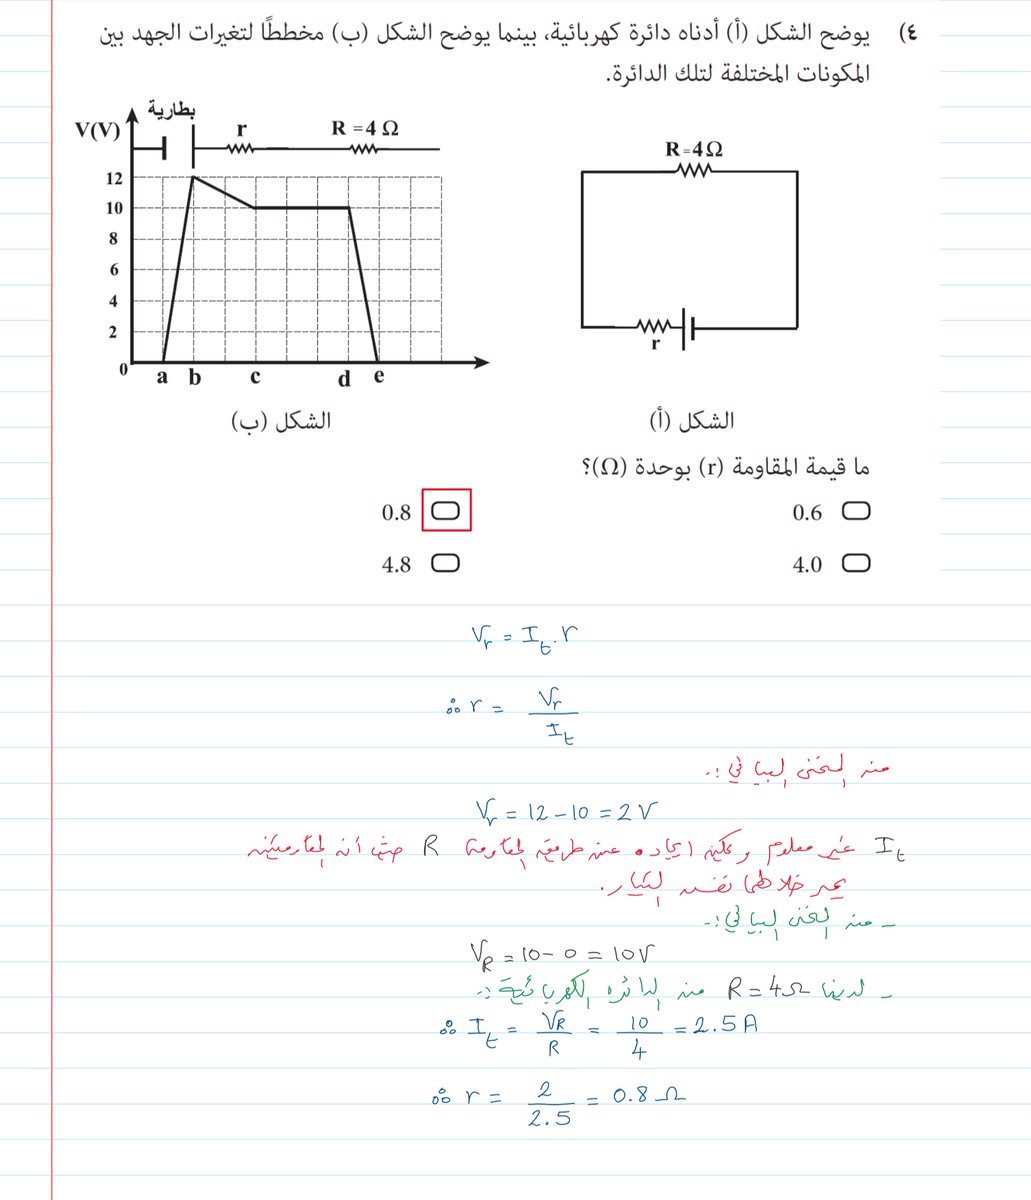 ٤) يوضح الشكل (أ) أدناه دائرة كهربائية، بينما يوضح الشكل (ب) مخططًا لتغيرات الجهد بين
المكونات المختلفة لتلك الدائرة.
بطارية
V(V)
r
R = 4 Ω
12
10
8
6
4
2
0
a b c d e
الشكل (ب)
R = 4 Ω
r
الشكل (أ)
ما قيمة المقاومة (r) بوحدة (Ω)؟
0.6
0.8
4.0
4.8
Vr = It . r
∴ r = Vr / It
من المنحنى البياني :.
Vr = 12 – 10 = 2 V
It غير معلوم ويمكن ايجاده عن طريق المقاومة R حيث أن المقاومتين
يمر خلالهما نفس التيار.
- من المنحنى البياني :.
VR = 10 – 0 = 10 V
- لدينا R = 4 Ω من الدائرة الكهربائية :.
∴ It = VR / R = 10 / 4 = 2.5 A
∴ r = 2 / 2.5 = 0.8 Ω